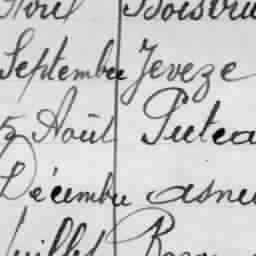 Avril Boisbru
Septembre Jeveze
5 Août Putea
Décembre asne
Juillet